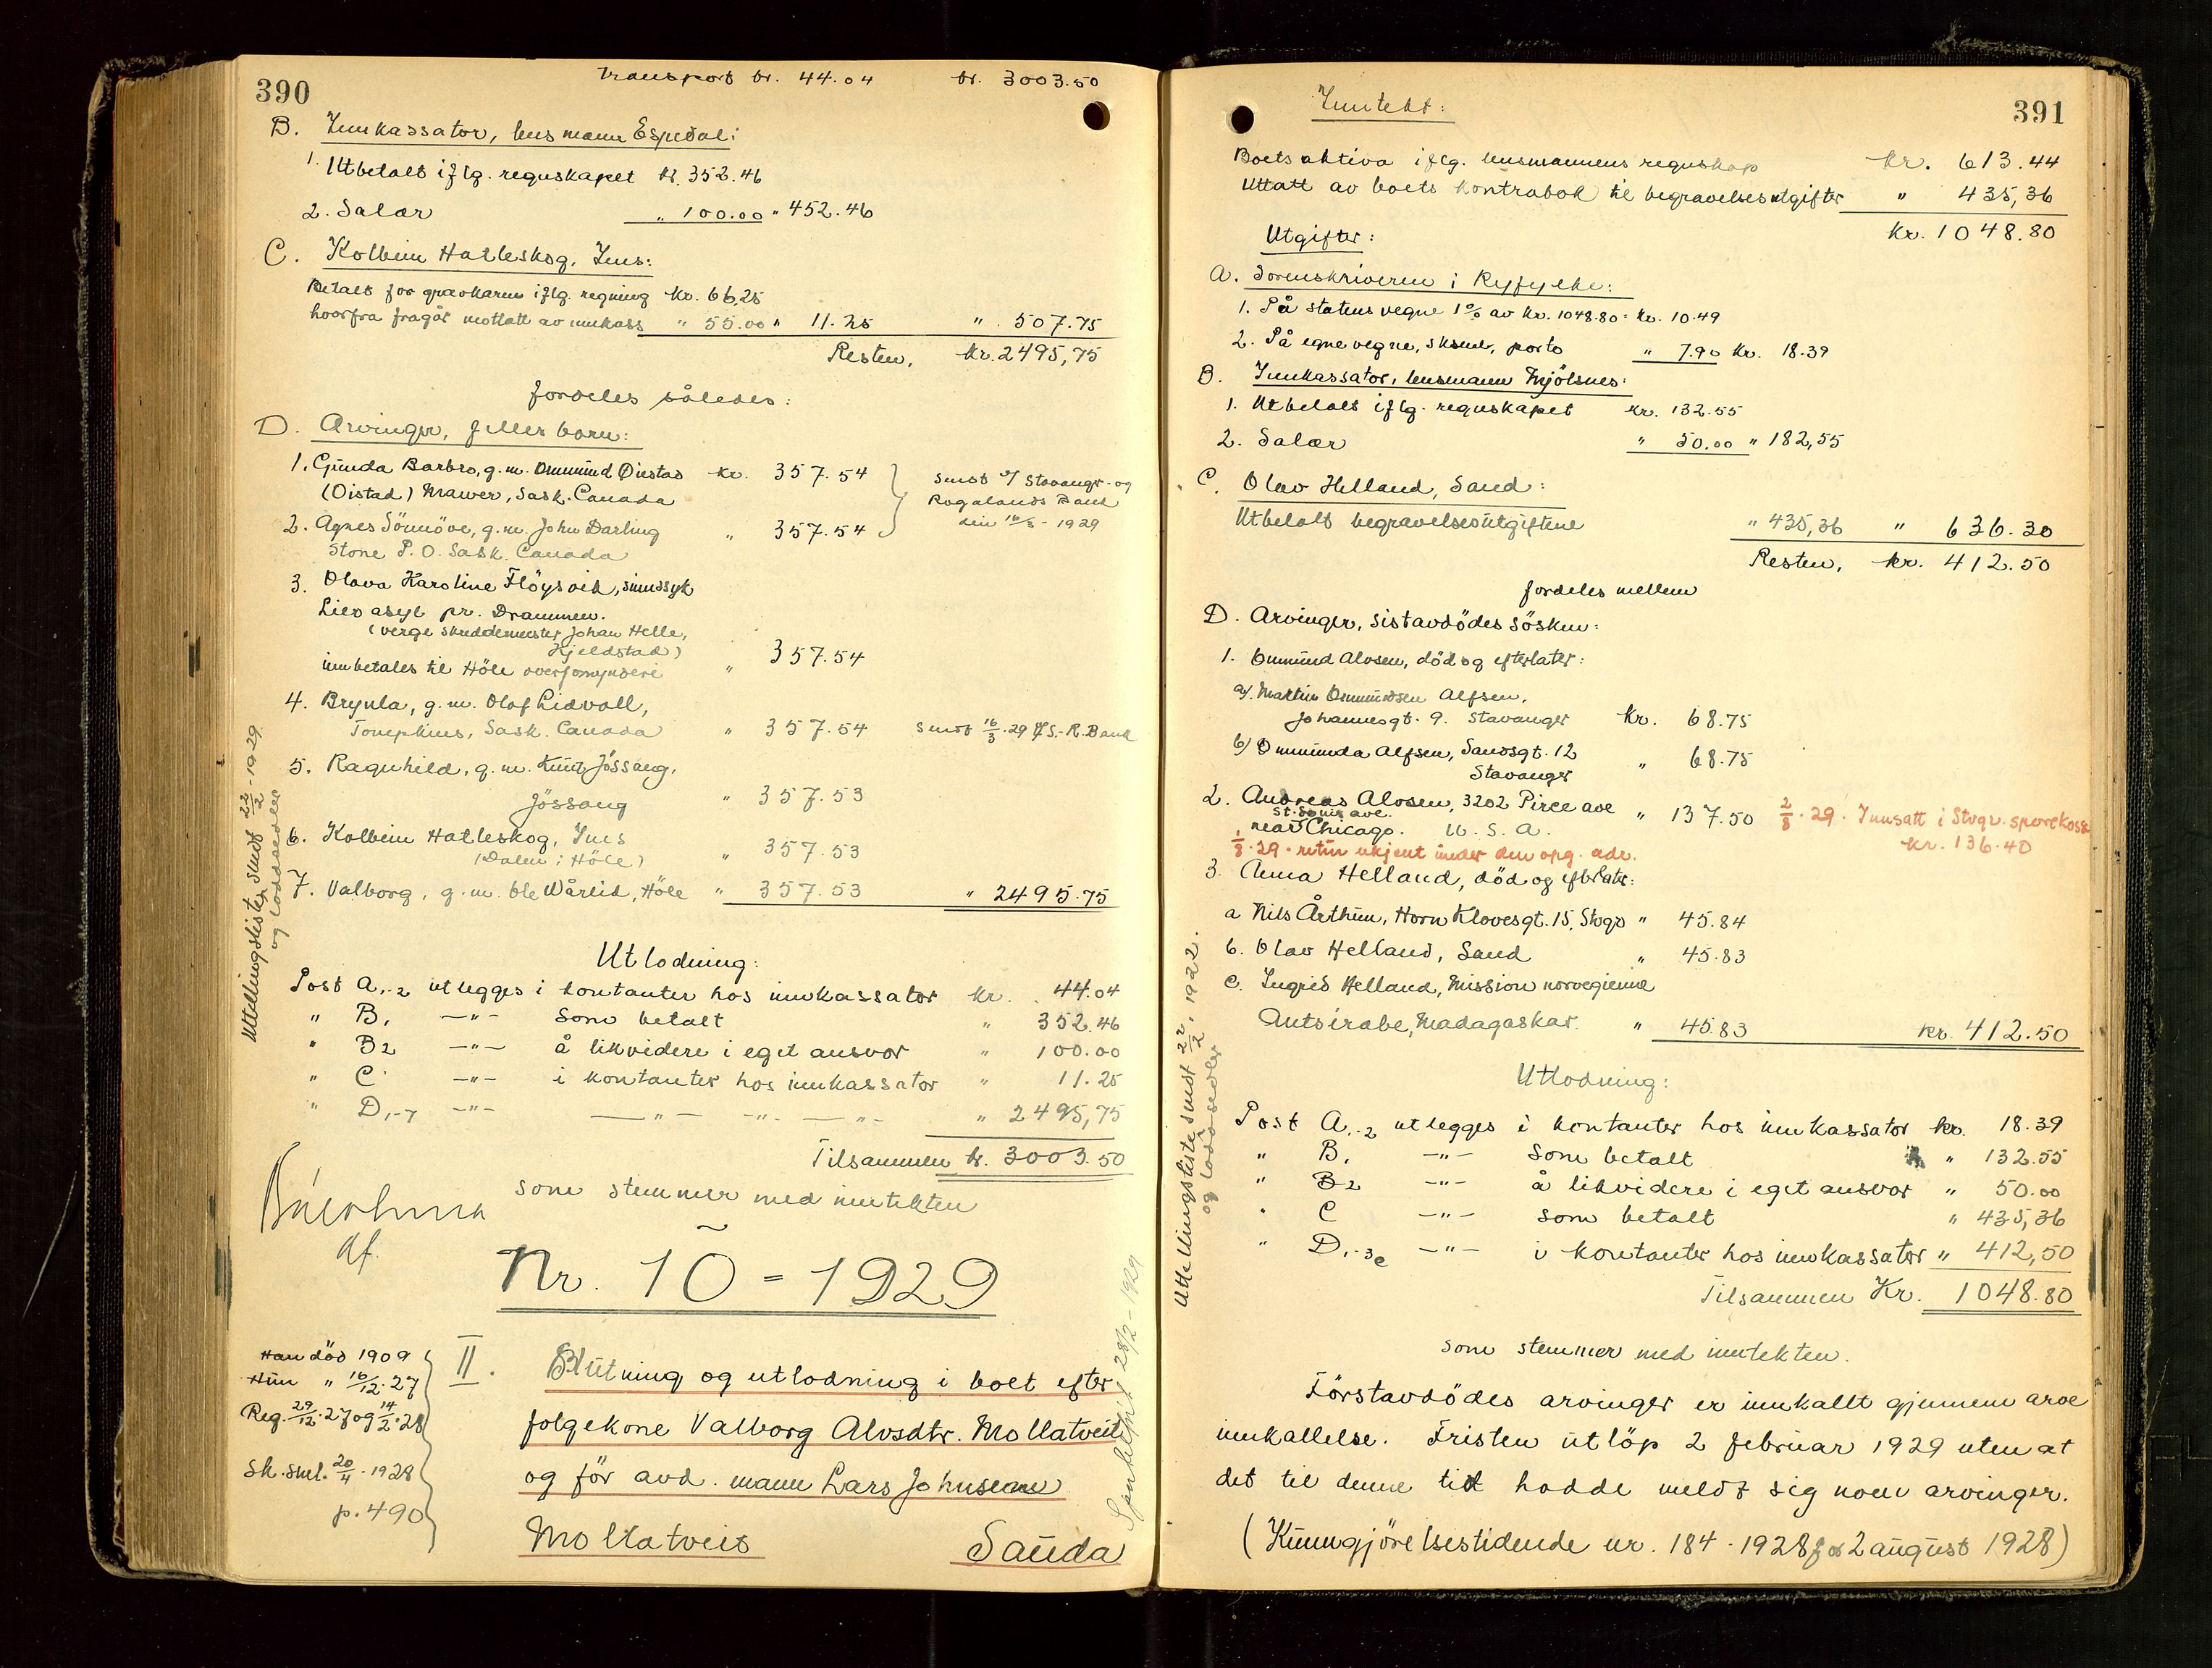 390
Transport kr. 44.04 kr. 3003.50
B. Innkassator, lensmann Espedal:
1. Utbetalt iflg. regnskapet kr. 352.46
2. Salær " 100.00 " 452.46
C. Kolbein Hatleskog, Ims:
Betalt for gravkaren iflg. regning kr. 66,25
hvorfra fragår mottatt av innkass " 55.00 " 11.25 " 507.75
Resten, kr. 2495,75
fordeles således:
D. Arvinger, felles barn:
1. Gunda Barbro, g.m. Ommund Öiestad kr. 357.54
(Oistad) Mawer, Sask. Canada
Sendt v/ Stavanger- og
Rogalands Bank
den 16/3 - 1929
2. Agnes Sönnöve, g.m. John Darling
Stone P.O. Sask. Canada " 357.54
3. Olava Karoline Flöysvik, sinnssyk
Lier asyl pr. Drammen.
(verge skreddermester Johan Helle,
Kjeldstad)
innbetales til Höle overformynderi " 357.54
4. Brynla, g.m. Olaf Lidvoll,
Tompkins, Sask. Canada " 357.54 Sendt 16/3.29 S.-R. Bank
5. Ragnhild, g.m. Knut Jössang,
Jössang " 357.53
6. Kolbein Hatleskog, Ims
(Dalen i Höle) " 357.53
7. Valborg, g.m. Ole Wårlid, Höle " 357.53 " 2495.75
Utlodning:
Post A,-2 utlegges i kontanter hos innkassator kr. 44.04
" B, —"— som betalt " 352.46
" B2 —"— å likvidere i eget ansvar " 100.00
" C —"— i kontanter hos innkassator " 11.25
" D,-7 —"— —"— —"— —"— " 2495,75
Tilsammen kr. 3003.50
som stemmer med inntekten
af.
Utellingslister sendt 22/2 - 1929
og loddsedler
Nr. 10 = 1929
Han död 1909
Hun " 16/12.27
Reg. 29/12.27 og 14/2.28
Sk.sml. 20/4 - 1928
p. 490
II. Slutning og utlodning i boet efter
folgekone Valborg Alvsdtr. Mollatveit
og för avd. mann Lars Johnsens
Mollatveit Sauda
28/2 - 1929
391
Inntekt:
Boets aktiva iflg. lensmannens regnskap kr. 613.44
Uttatt av boets kontrabok til begravelsesutgifter " 435,36
kr. 1048.80
Utgifter:
A. Sorenskriveren i Ryfylke:
1. På statens vegne 1% av kr. 1048.80 = kr. 10.49
2. På egne vegne, sksml, porto " 7.90 kr. 18.39
B. Innkassator, lensmann Mjölsnes:
1. Utbetalt iflg. regnskapet kr. 132.55
2. Salær " 50.00 " 182,55
C. Olav Helland, Sand:
Utbetalt begravelsesutgiftene " 435,36 " 636.30
Resten, kr. 412.50
fordeles mellem
D. Arvinger, sistavdödes sösken:
1. Ommund Alvsen, död og efterlater:
a). Martin Ommundsen Alfsen,
Johannesgt. 9. Stavanger kr. 68.75
b) Ommunda Alfsen, Sandsgt. 12
Stavanger " 68.75
2. Andreas Alvsen, 3202 Pirce ave " 137.50 2/8.29. Innsatt i Stvgr. sparekasse
St. Louis ave.
near Chicago. U.S.A. kr. 136.40
1/8.29. retur ukjent under den opg. adr.
3. Anna Helland, död og efterlater:
a Nils Årthun, Horn Klovesgt. 15, Stvgr " 45.84
b. Olav Helland, Sand " 45.83
c. Ingrid Helland, Mission norvegienne
Antsirabe, Madagaskar " 45.83 kr. 412.50
Utlodning:
Post A,-2 utlegges i kontanter hos innkassator kr. 18.39
" B, —"— som betalt " 132.55
" B2 —"— å likvidere i eget ansvar " 50.00
" C —"— som betalt " 435,36
" D,-3c —"— i kontanter hos innkassator " 412,50
Tilsammen Kr. 1048.80
som stemmer med inntekten.
Utellingsliste sendt 22/2. 1922.
og loddsedler
Förstavdödes arvinger er innkallt gjennem arve
innkallelse. Fristen utlöp 2 februar 1929 uten at
det til denne tid hadde meldt sig noen arvinger.
(Kunngjörelsestidende nr. 184 - 1928 for 2 august 1928)